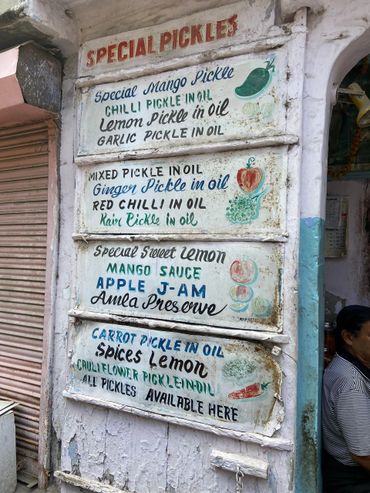 SPECIAL PICKLES
Special Mango Pickle
CHILLI PICKLE IN OIL
Lemon Pickle in oil
GARLIC PICKLE IN OIL
MIXED PICKLE IN OIL
Ginger Pickle in oil
RED CHILLI IN OIL
Kair Pickle in oil
Special Sweet Lemon
MANGO SAUCE
APPLE J-AM
Amla Preserve
CARROT PICKLE IN OIL
Spices Lemon
CAULIFLOWER PICKLE-IN-OIL
ALL PICKLES AVAILABLE HERE